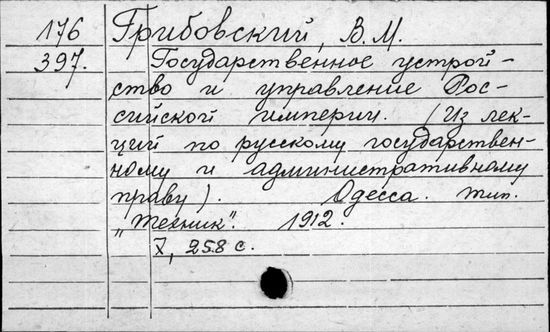 176 Грибовский, В.М.
397. Государственное устрой-
ство и управление Рос-
сийской империи. (Из лек-
ций по русскому государствен-
ному и административному
праву). Одесса. тип.
„Техник". 1912.
X, 258 с.